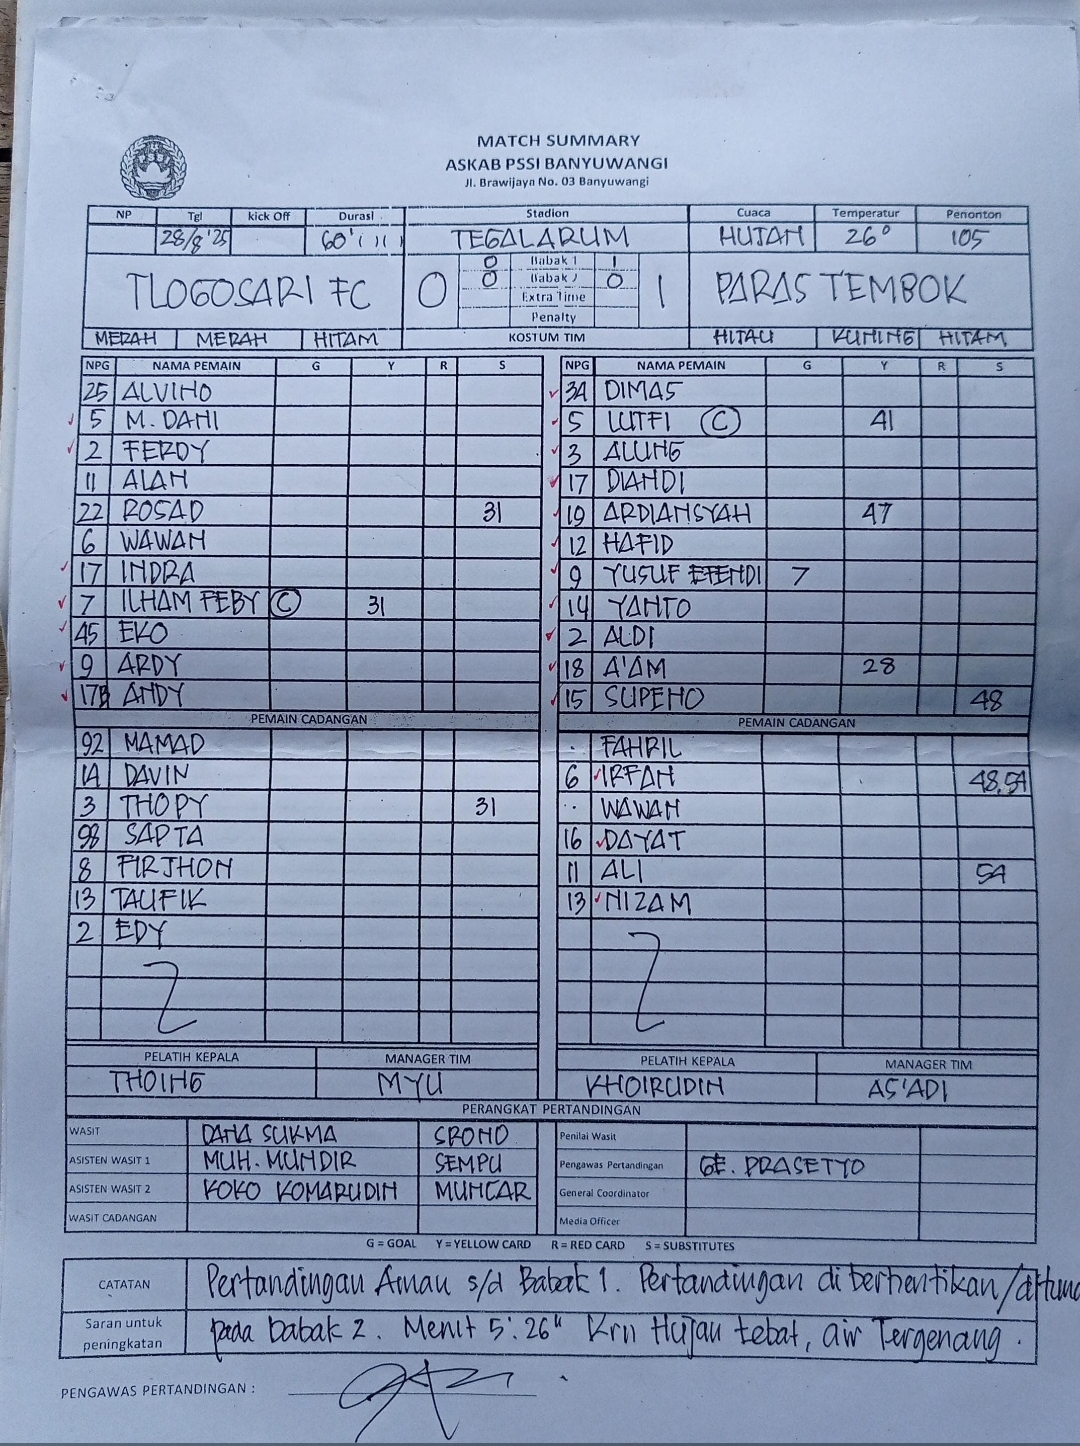 MATCH SUMMARY
ASKAB PSSI BANYUWANGI
Jl. Brawijaya No. 03 Banyuwangi
NP Tgl kick Off Durasi Stadion Cuaca Temperatur Penonton
28/8'25 60' TEGALARUM HUJAN 26° 105
0 Babak 1 1
0 Babak 2 0
TLOGOSARI FC 0 Extra Time 1 PARAS TEMBOK
Penalty
MERAH MERAH HITAM KOSTUM TIM HIJAU KUNING HITAM
NPG NAMA PEMAIN G Y R S NPG NAMA PEMAIN G Y R S
25 ALVINO 34 DIMAS
5 M. DANI 5 LUTFI C 41
2 FERDY 3 ALUNG
11 ALAN 17 DIANDI
22 ROSAD 31 19 ARDIANSYAH 47
6 WAWAN 12 HAFID
17 INDRA 9 YUSUF EFENDI 7
7 ILHAM FEBY C 31 14 YANTO
45 EKO 2 ALDI
9 ARDY 18 A'AM 28
17B ANDY 15 SUPENO 48
PEMAIN CADANGAN PEMAIN CADANGAN
92 MAMAD FAHRIL
14 DAVIN 6 IRFAN 48.54
3 THOPY 31 WAWAN
98 SAPTA 16 DAYAT
8 FIRJHON 11 ALI 54
13 TAUFIK 13 NIZAM
2 EDY
PELATIH KEPALA MANAGER TIM PELATIH KEPALA MANAGER TIM
THOING MYU KHOIRUDIN AS'ADI
PERANGKAT PERTANDINGAN
WASIT DANA SUKMA SRONO Penilai Wasit
ASISTEN WASIT 1 MUH. MUNDIR SEMPU Pengawas Pertandingan GE. PRASETYO
ASISTEN WASIT 2 KOKO KOMARUDIN MUNCAR General Coordinator
WASIT CADANGAN Media Officer
G = GOAL Y = YELLOW CARD R = RED CARD S = SUBSTITUTES
CATATAN Pertandingan Aman s/d Babak 1. Pertandingan di berhentikan/
Saran untuk peningkatan pada babak 2. Menit 5'.26" Krn Hujan lebat, air Tergenang.
PENGAWAS PERTANDINGAN :